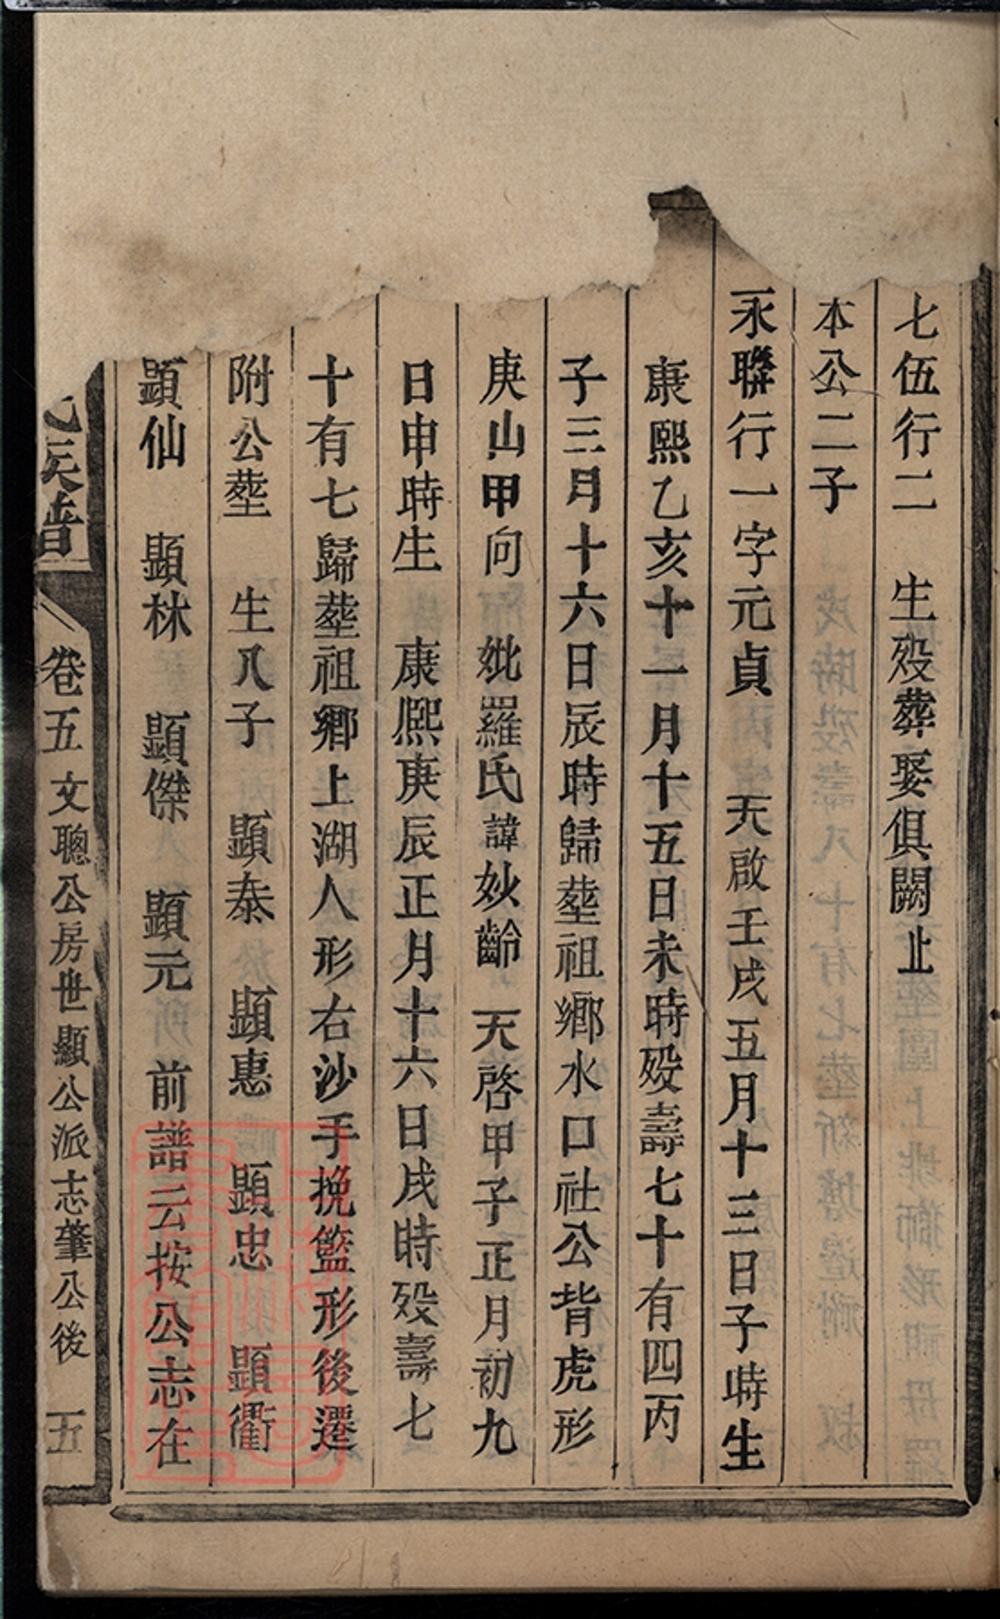 七伍行二　生歿葬娶俱闕止
本公二子
永聯行一字元貞　天啟壬戌五月十三日子時生
康熙乙亥十一月十五日未時歿壽七十有四丙
子三月十六日辰時歸塟祖鄉水口社公背虎形
庚山甲向　妣羅氏諱妙齡　天啓甲子正月初九
日申時生　康熙庚辰正月十六日戌時歿壽七
十有七歸塟祖鄉上湖人形右沙手挽籃形後遷
附公塟　生八子　顯泰　顯惠　顯忠　顯衢
顯仙　顯林　顯傑　顯元　前譜云按公志在
氏族譜　卷五　文聰公房世顯公派志肇公後　五